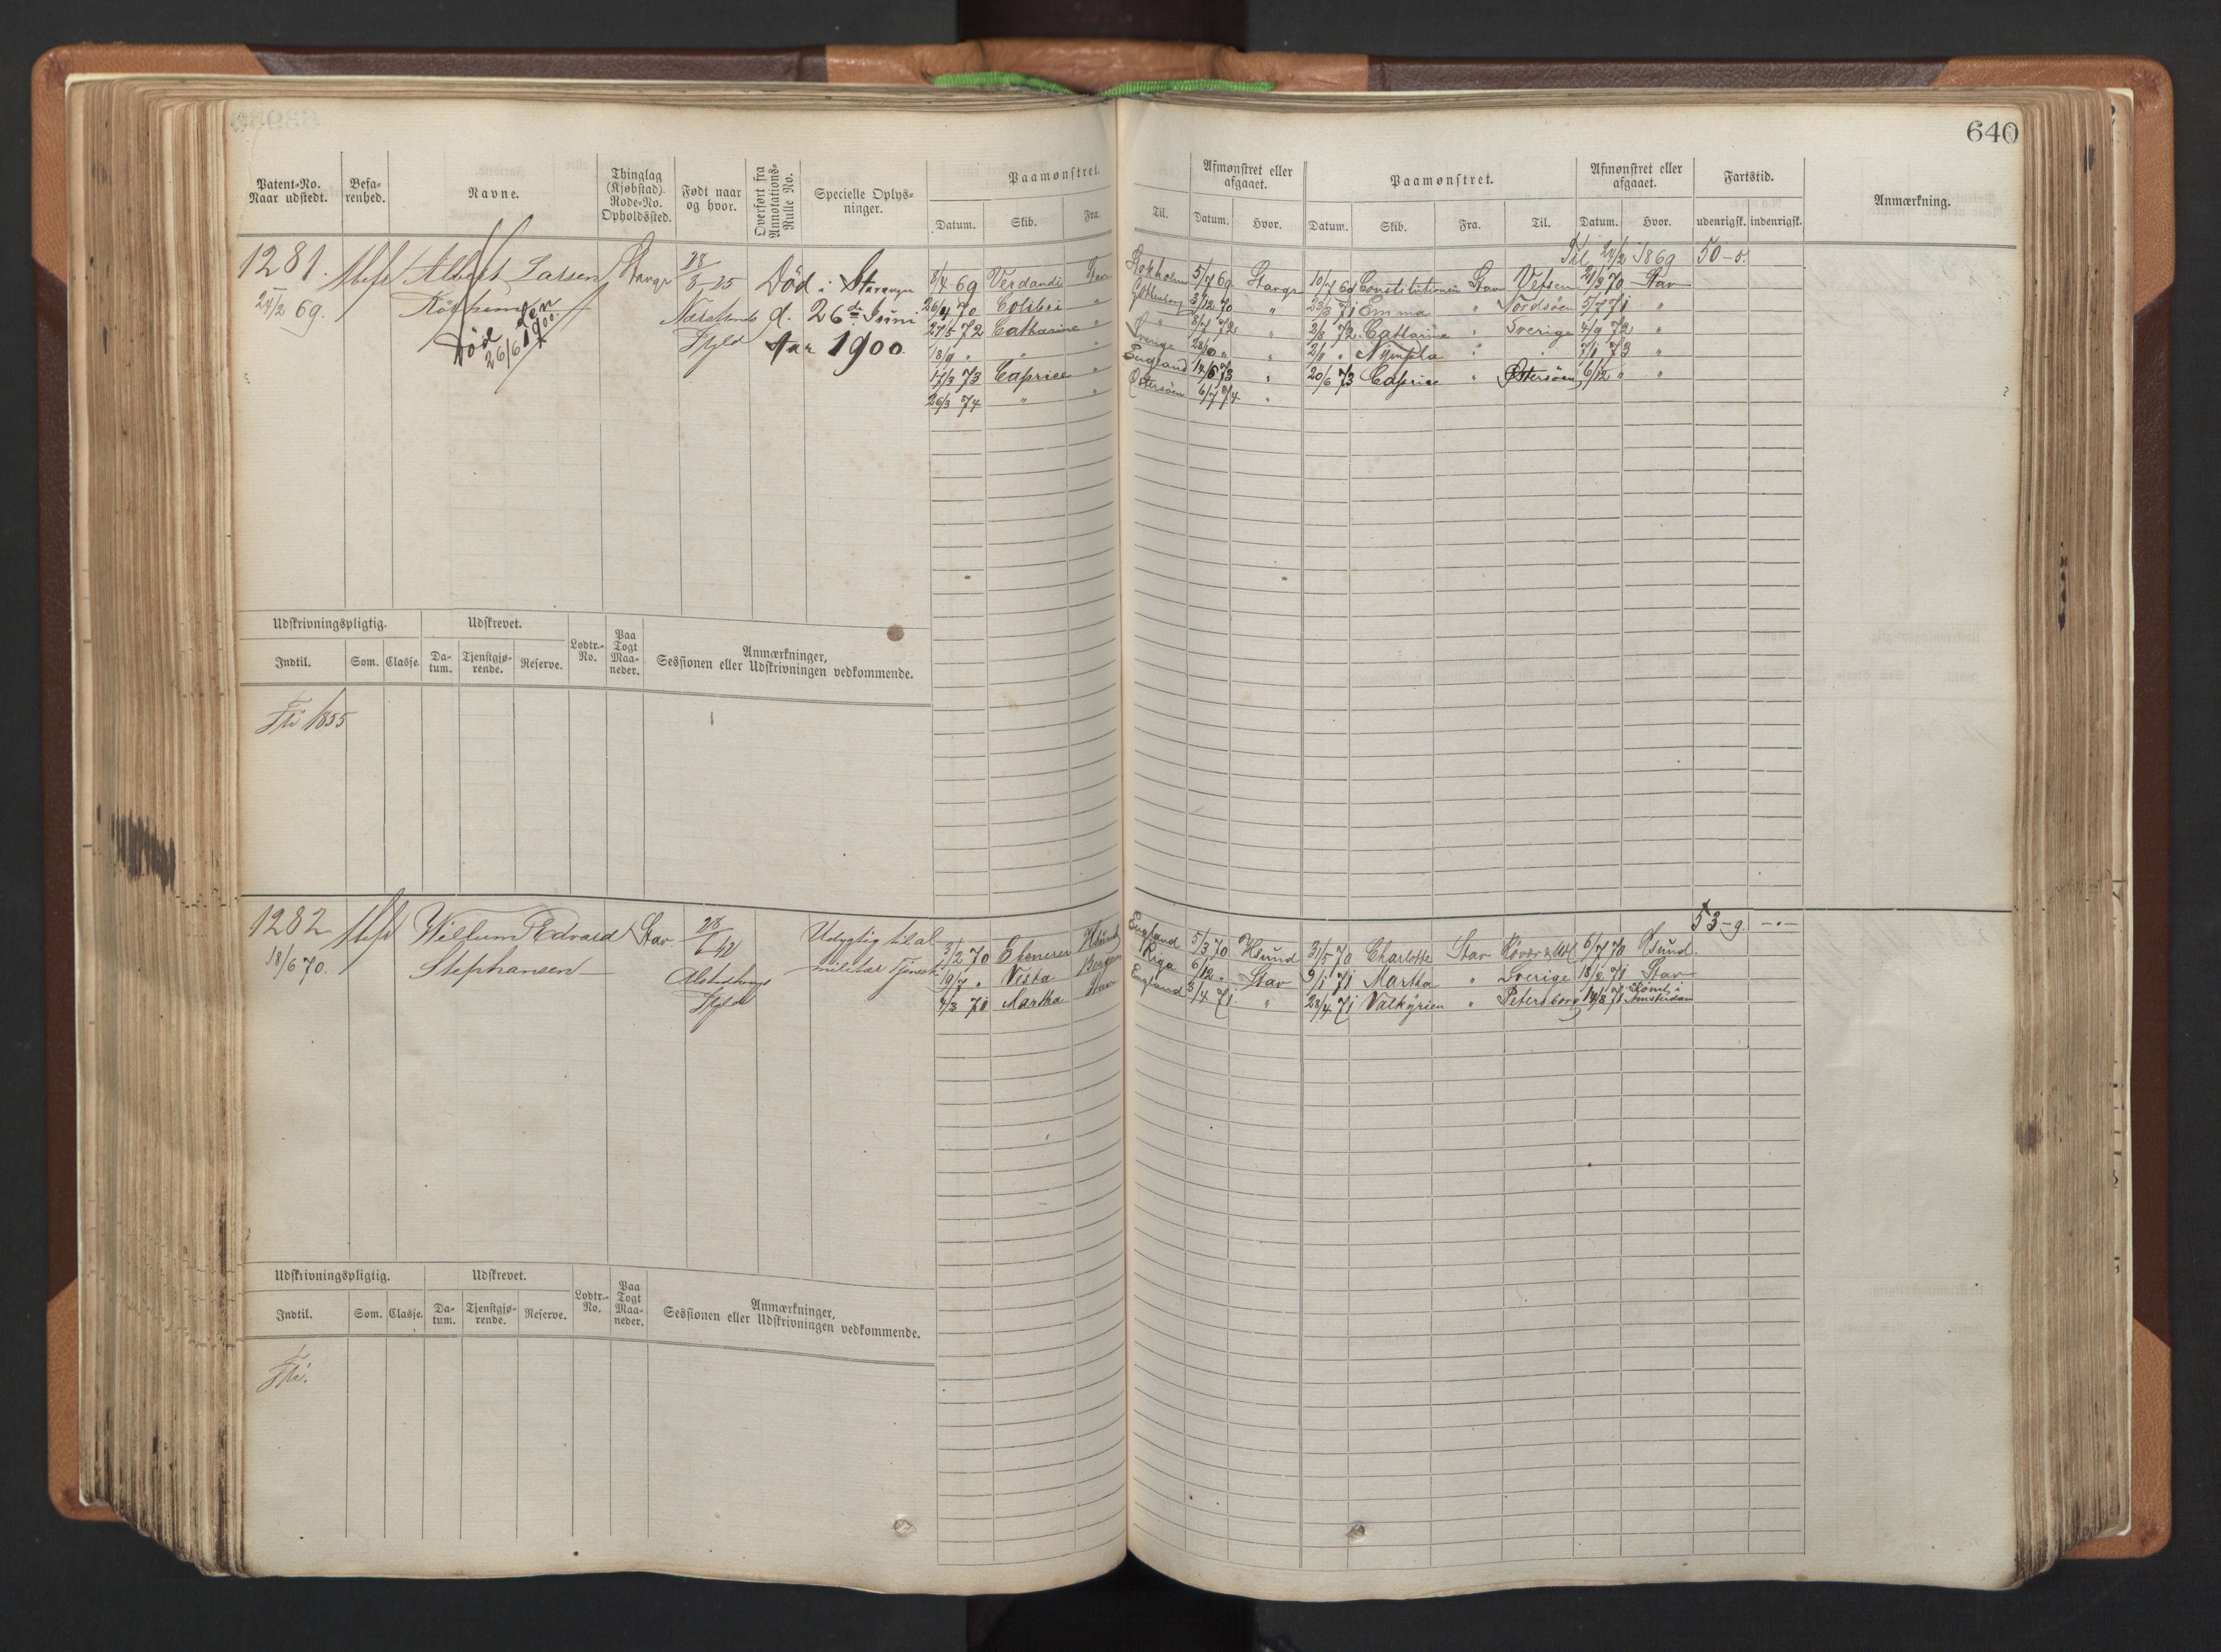 640
Patent-No. Naar udstedt.
Befa-renhed.
Navne.
Thinglag (Kjøbstad). Rode-No. Opholdssted.
Født naar og hvor.
Overført fra Annotations-Rulle No.
Specielle Oplys-ninger.
Paamønstret.
Datum. Skib. Fra. Til.
Afmønstret eller afgaaet.
Datum. Hvor.
Paamønstret.
Datum. Skib. Fra. Til.
Afmønstret eller afgaaet.
Datum. Hvor.
Fartstid.
udenrigsk. indenrigsk.
Anmærkning.
1281. Albert Larsen Stavgr 28/8 25
24/2 69.
Død 26/6 1900.
Død i Stavanger
d. 26de Juni
Aar 1900.
Til 24/2 1869 50-5.
8/4 69 Verdandi Stav Stokholm 5/7 69 Stavgr 10/7 69 Constitutionen Stav Vefsen 21/3 70 Stav
26/4 70 Colibri " Gøttenborg 3/12 70 " 23/3 71 Emma " Nordsøen 5/7 71 "
27/5 72 Catharine " " 8/7 72 " 8/8 72 Catharine " Sverige 4/9 72 "
18/9 " " " Sverige 28/10 " " 2/11 " Nympha " " 7/1 73 "
17/3 73 Caprice " England 14/6 73 " 20/6 73 Caprice " Østersøen 6/12 " "
26/3 74 " " Østersøen 6/7 74 "
Udskrivningspligtig.
Udskrevet.
Lodtr.-No.
Paa Togt Maa-neder.
Anmærkninger, Sessionen eller Udskrivningen vedkommende.
Indtil. Som. Classe. Da-tum. Tjenstgjø-rende. Reserve.
Fri 1855
1282 Willum Edvard Stav 28/1 42 Udygtig til al
18/6 70. Stephansen militær Tjeneste
Fyld
53-9. -"-
3/2 70 Ebenezer Hsund England 5/3 70 Hsund 31/5 70 Charlotte Stav 6/7 70 Hsund.
19/7 " Vesta Bergen Riga 6/12 " Stav 9/1 71 Martha " Sverige 18/2 71 Stav
7/3 70 Martha Stav England 3/4 71. " 28/4 71 Valkyrien " Petersborg 14/8 71 Rømt i Amsterdam
Udskrivningspligtig.
Udskrevet.
Lodtr.-No.
Paa Togt Maa-neder.
Anmærkninger, Sessionen eller Udskrivningen vedkommende.
Indtil. Som. Classe. Da-tum. Tjenstgjø-rende. Reserve.
Fri.